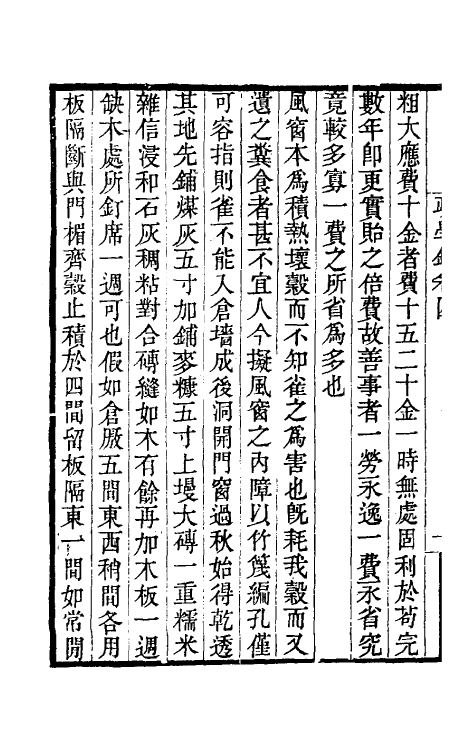 粗大應費十金者費十五二十金一時無處固利於茍完
數年卽更實貽之倍費故善事者一勞永逸一費永省究
竟較多寡一費之所省爲多也
風窗本爲積熱壞穀而不知雀之爲害也旣耗我穀而又
遺之糞食者甚不宜人今擬風窗之內障以竹篾編孔僅
可容指則雀不能入倉墻成後洞開門窗過秋始得乾透
其地先鋪煤灰五寸加鋪麥糠五寸上墁大磚一重糯米
雜信浸和石灰稠粘對合磚縫如木有餘再加木板一週
缺木處所釘席一週可也假如倉厫五間東西稍間各用
板隔斷與門楣齊穀止積於四間留板隔東一間如常閒